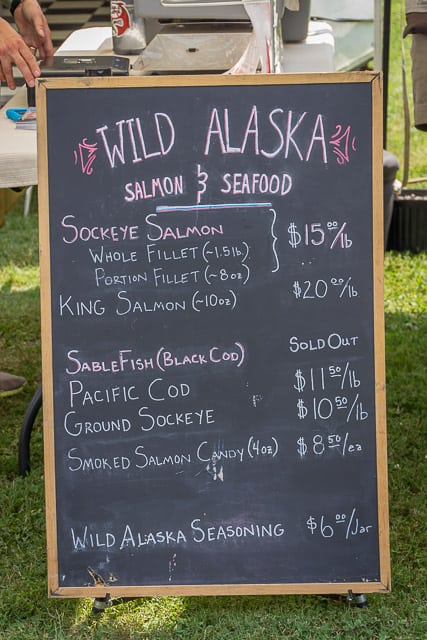 WILD ALASKA
SALMON & SEAFOOD
SOCKEYE SALMON
WHOLE FILLET (~1.5lb) $15.00/lb
PORTION FILLET (~8oz)
KING SALMON (~10oz) $20.00/lb
SABLEFISH (BLACK COD) SOLD OUT
PACIFIC COD $11.50/lb
GROUND SOCKEYE $10.50/lb
SMOKED SALMON CANDY (4oz) $8.50/ea
WILD ALASKA SEASONING $6.00/Jar